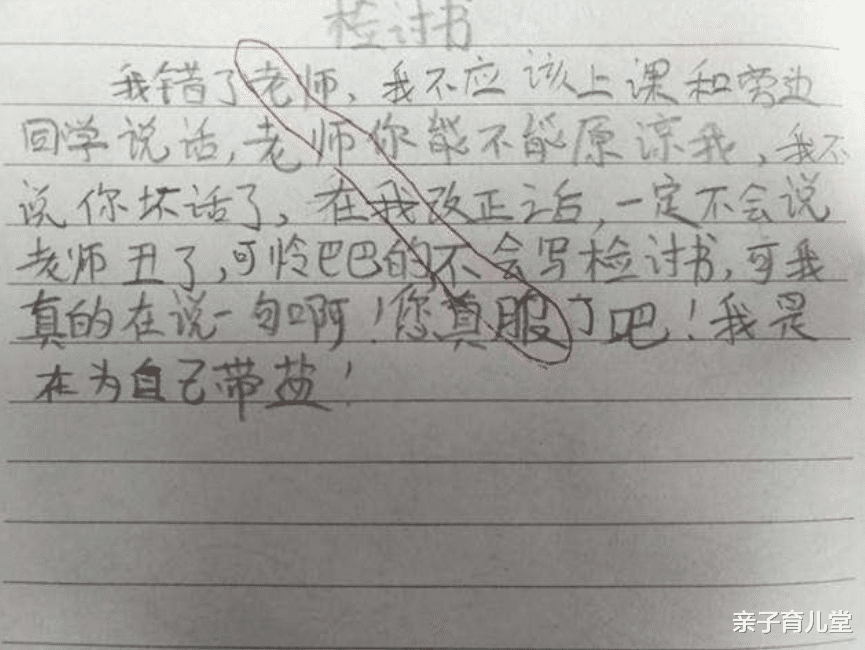 检讨书
我错了老师，我不应该上课和旁边
同学说话，老师你能不能原谅我，我不
说你坏话了，在我改正之后，一定不会说
老师丑了，可怜巴巴的不会写检讨书，可我
真的在说一句啊！您真服了吧！我是
在为自己带盐！
亲子育儿堂